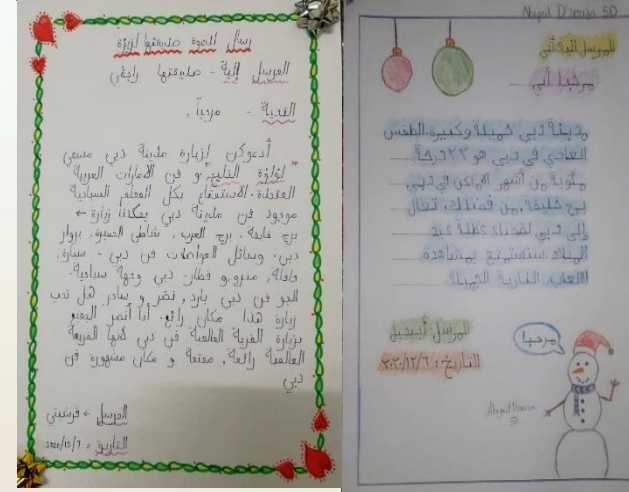 رسائل الدعوة صديقتها لزيارة
المرسل إليه - صديقتها
التحية - مرحباً،
أدعوكن لزيارة مدينة دبي مسمي
"لؤلؤة الخليج" و في الأمارات العربية
المتحدة. الاستمتاع بكل المعالم السياحية
موجود في مدينة دبي يمكننا زيارة ←
برج خليفة. برج العرب. شاطئ الجميرة. برواز
دبي. وسائل المواصلات في دبي - سيارة,
حافلة, مترو و قطار. دبي وجهة سياحية.
الجو في دبي بارد, نضر و ساحر. هل تحب
زيارة هذا مكان رائع. أنا أنصر الجميع
بزيارة القرية العالمية في دبي لأنها القرية
العالمية رائعة, ممتعة و مكان مشهورة في
دبي
المرسل ←
التاريخ = 2020/12/6
Abigail D'souza 5D
المرسل إليه: أني
مرحبا أني
مدينة دبي جميلة وكبيرة. الطقس
العادي في دبي هو ٢٣ درجة
مئوية من أشهر الاماكن في دبي
برج خليفة. من فضلك، تعال
إلى دبي لقضاء عطلة عيد
الميلاد ستستمتع بمشاهدة
الالعاب النارية الجميلة.
المرسل: أبيجيل
التاريخ: ٢٠٢٠/١٢/٦
مرحبا
Abigail D'souza
5D